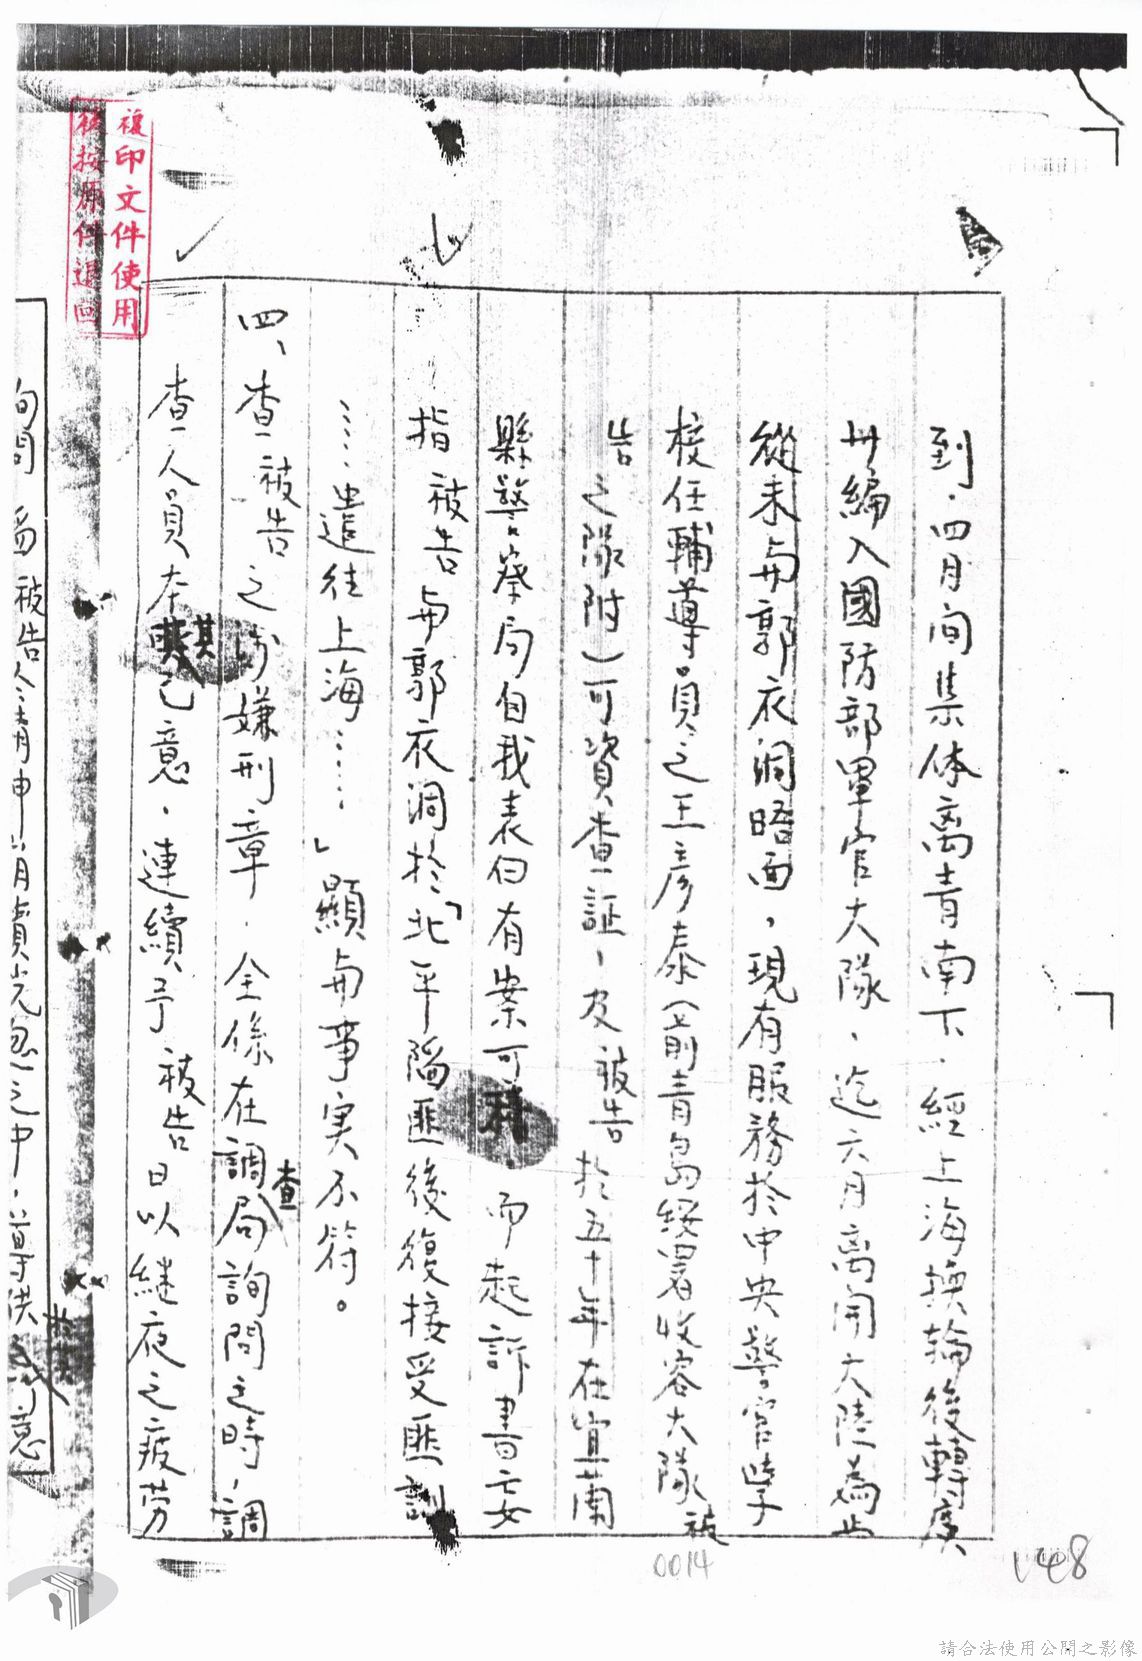 到，四月间集体离青南下，經上海換輪後轉廣
州編入國防部軍官大隊，迄六月离開大陸為止
從未與郭衣洞晤面，現有服務於中央警官學
校任輔導員之王彥泰（前青島綏署收容大隊被
告之隊附）可資查証，及被告於五十年在宜蘭
縣警察局自我表白有案可 而起訴書妄
指被告與郭衣洞於「北平陷匪後復接受匪訓
……遣往上海……」顯與事実不符。
四、查被告之 嫌刑章，全係在調查局詢問之時，調
查人員本其己意，連續予被告日以継夜之疲劳
詢問 被告 精申 之中， 供 意
複印文件使用
後按原件退回
0014
148
請合法使用公開之影像